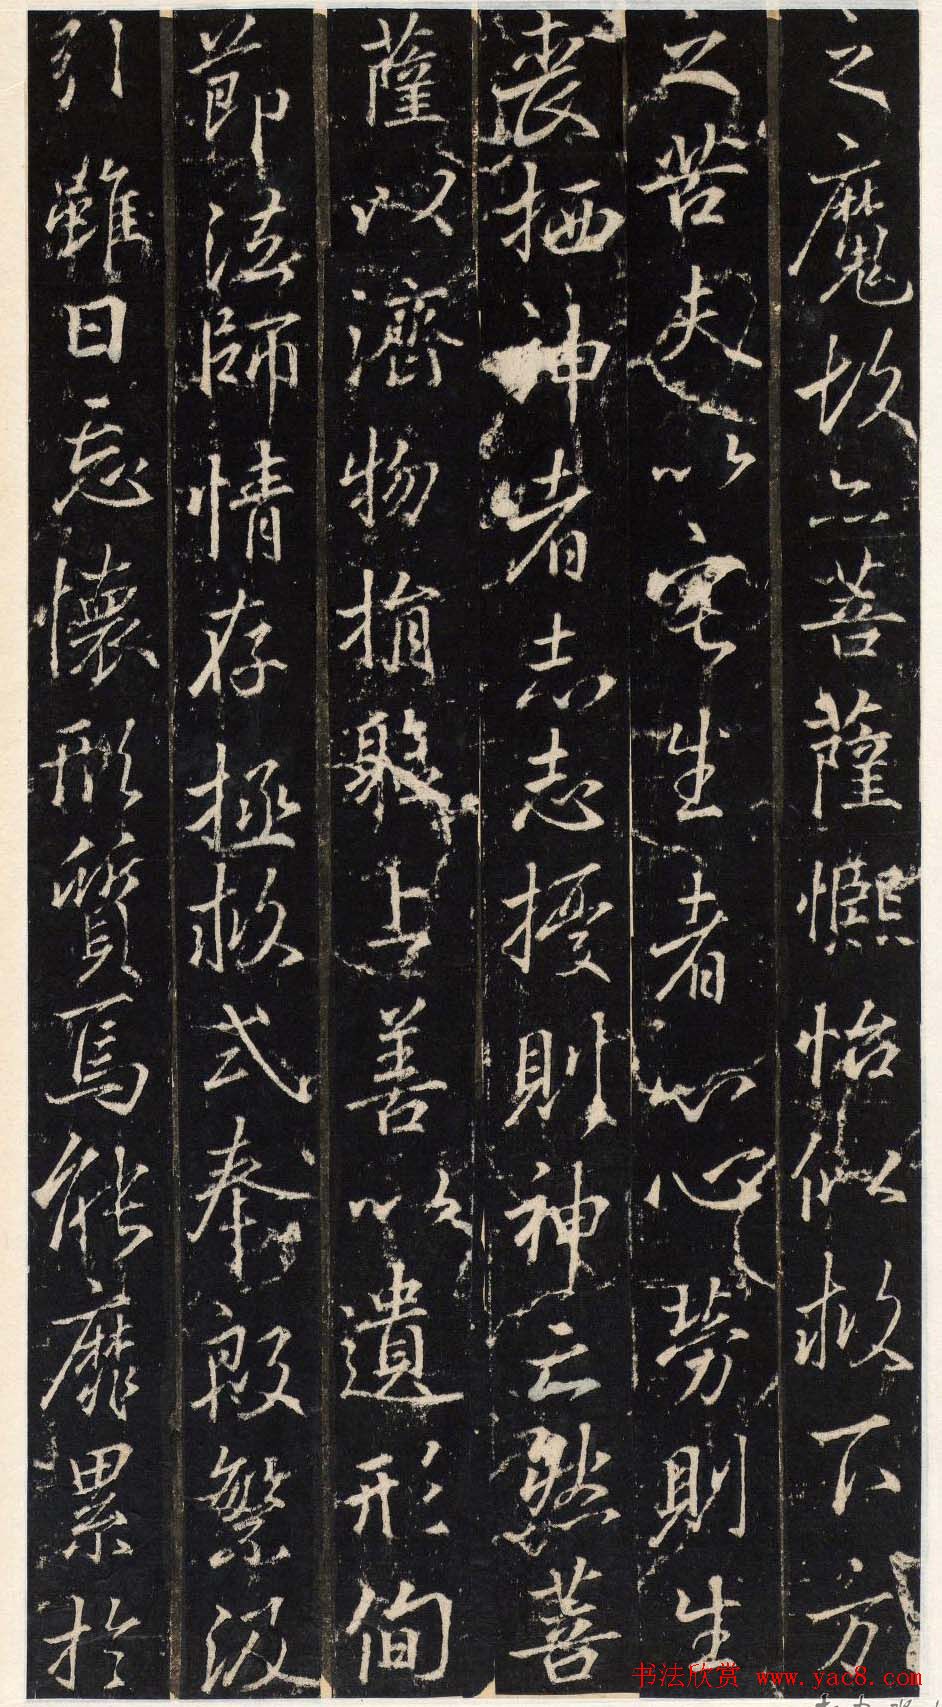 之魔故亦菩薩熙怡似救下方
之苦夫以宅生者心心勞則生
喪栖神者志志擾則神亡然菩
薩以濟物捐聚上善以遺形侚
節法師情存拯救式奉殷繁汲
引雖曰忘懷形質焉能靡累於
书法欣赏 www.yac8.com